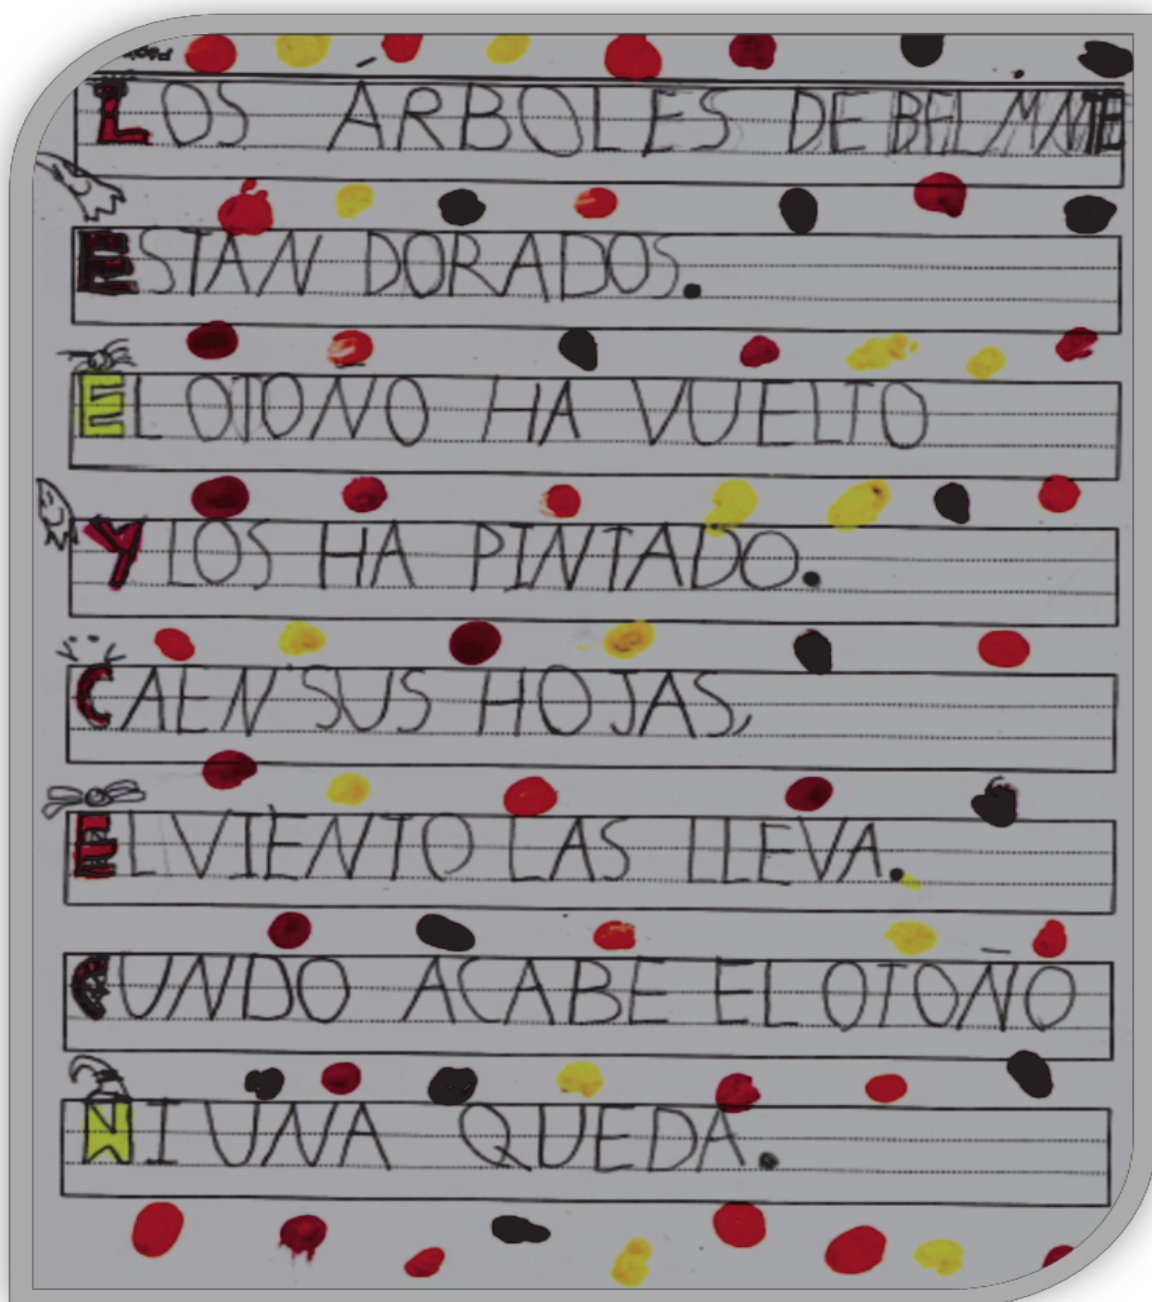 LOS ÁRBOLES DE BELMNTE
ESTAN DORADOS.
EL OTONO HA VUELTO
Y LOS HA PINTADO.
CAEN SUS HOJAS,
EL VIENTO LAS LLEVA.
CUNDO ACABE EL OTOÑO
NI UNA QUEDA.